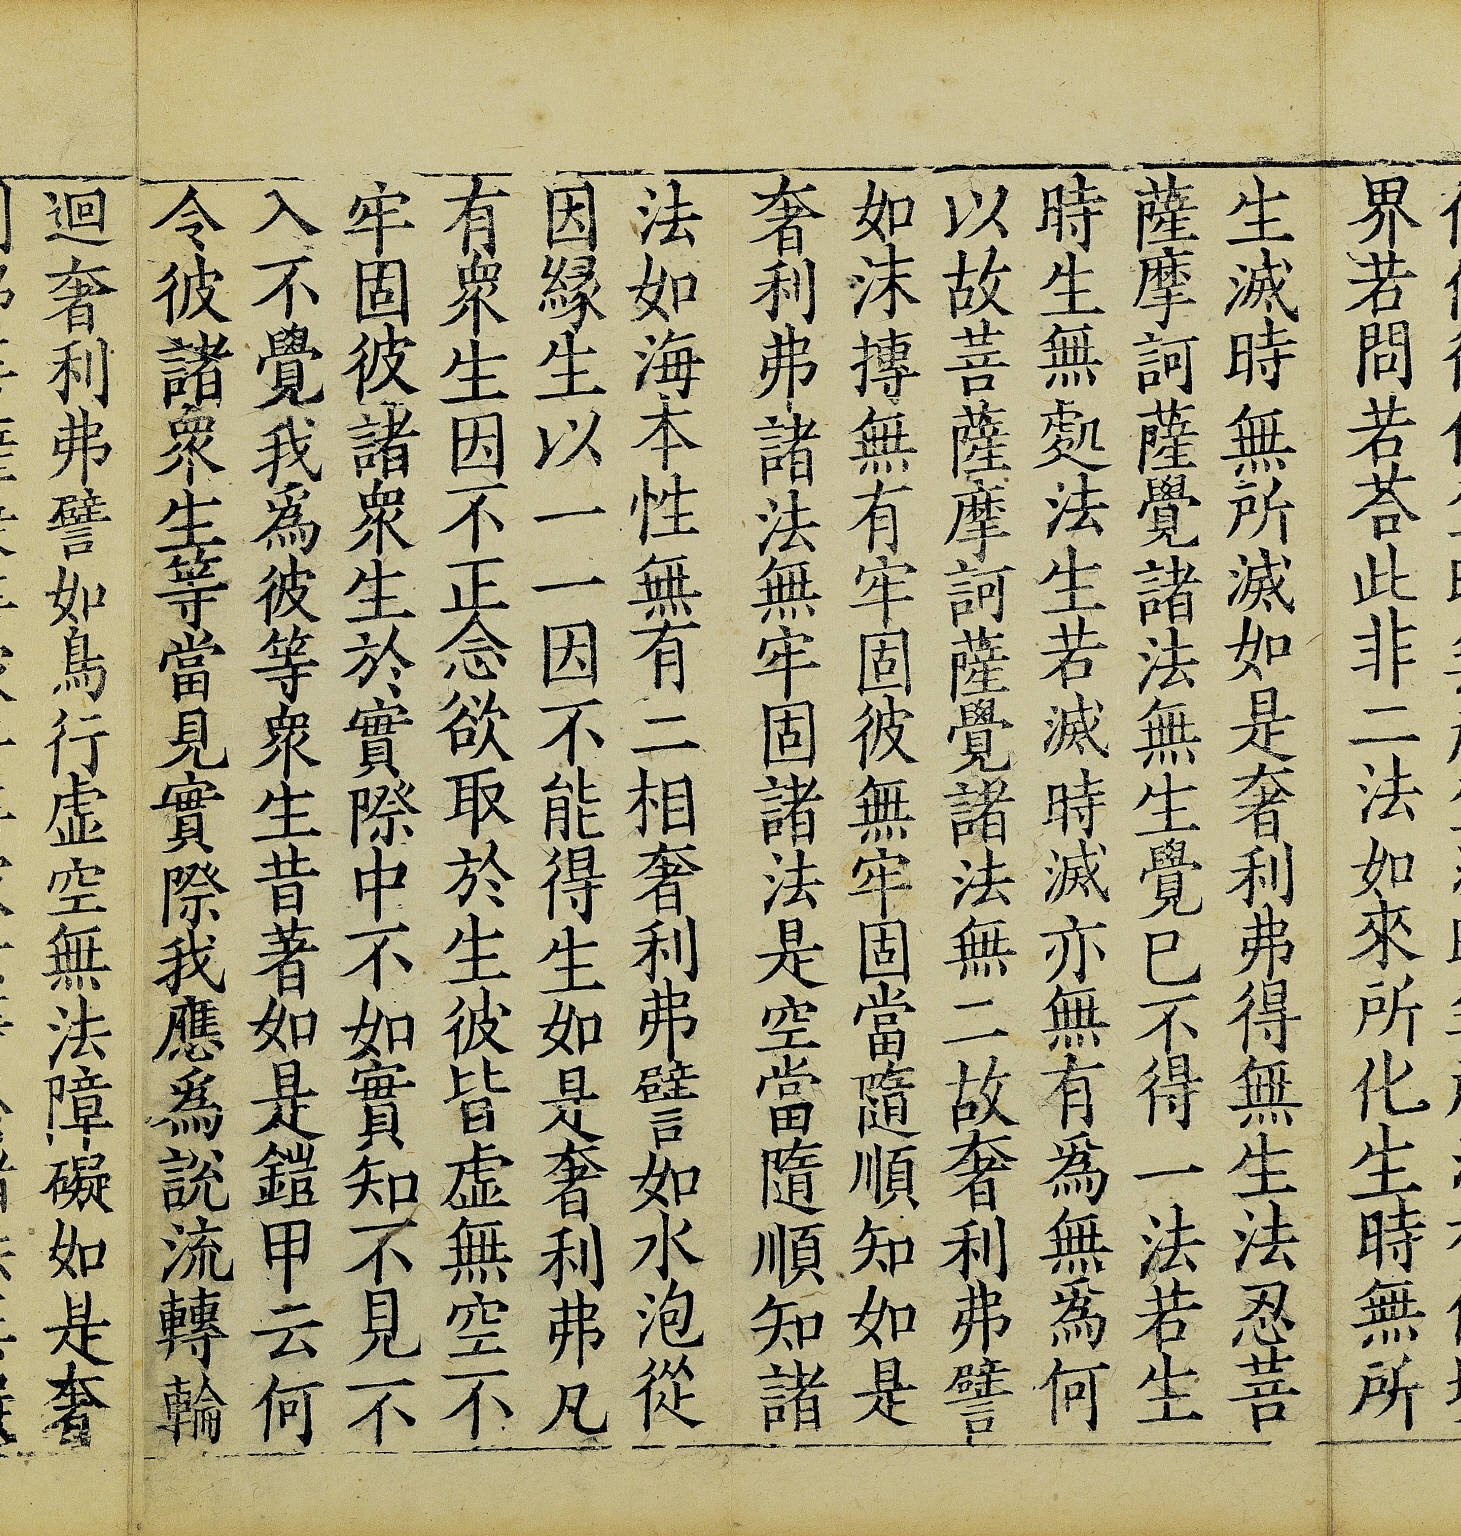 界若問若荅此非二法如來所化生時無所
生滅時無所滅如是奢利弗得無生法忍菩
薩摩訶薩覺諸法無生覺已不得一法若生
時生無處法生若滅時滅亦無有爲無爲何
以故菩薩摩訶薩覺諸法無二故奢利弗譬
如沫摶無有牢固彼無牢固當隨順知如是
奢利弗諸法無牢固諸法是空當隨順知諸
法如海本性無有二相奢利弗譬如水泡從
因緣生以一一因不能得生如是奢利弗凡
有衆生因不正念欲取於生彼皆虛無空不
牢固彼諸衆生於實際中不如實知不見不
入不覺我爲彼等衆生昔著如是鎧甲云何
令彼諸衆生等當見實際我應爲說流轉輪
迴奢利弗譬如鳥行虛空無法障礙如是奢